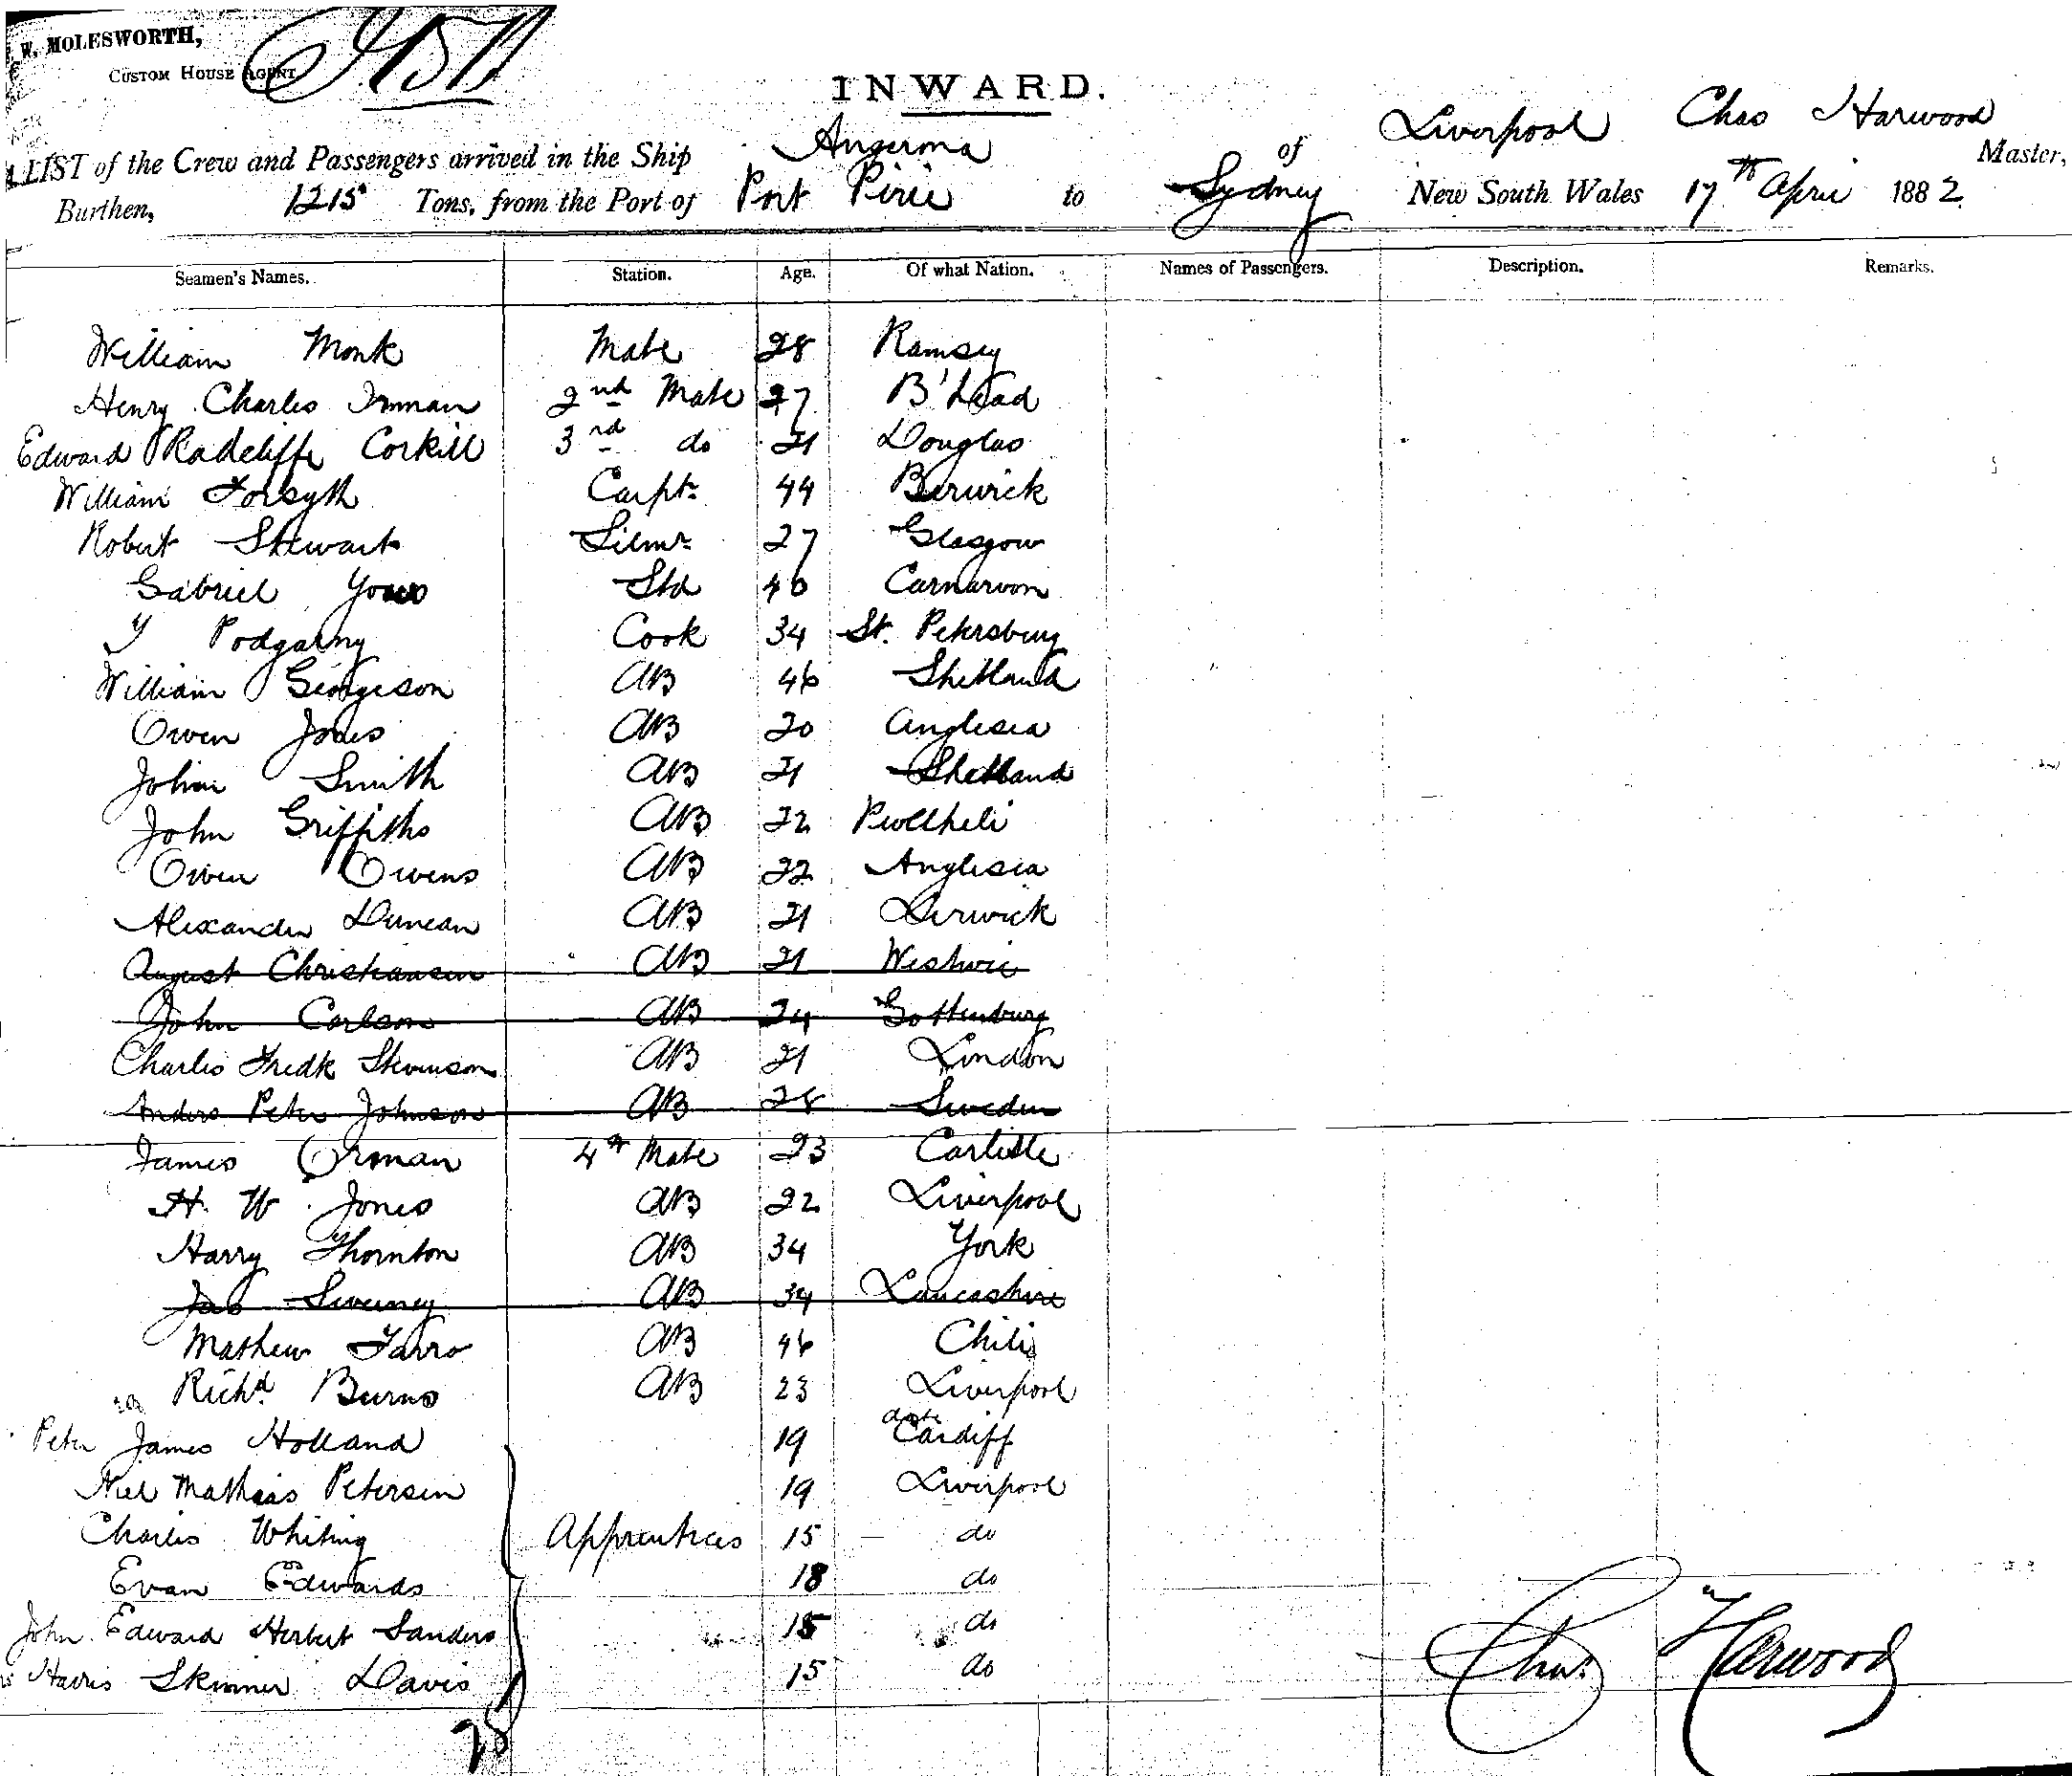 W. MOLESWORTH,
CUSTOM HOUSE AGENT
INWARD.
LIST of the Crew and Passengers arrived in the Ship Angerona of Liverpool Chas Harwood Master,
Burthen, 1215 Tons, from the Port of Port Pirie to Sydney New South Wales 17th April 1882
Seamen's Names. Station. Age. Of what Nation. Names of Passengers. Description. Remarks.
William Monk Mate 28 Ramsey
Henry Charles Inman 2nd Mate 27 B'head
Edward Radcliffe Corkill 3rd do 21 Douglas
William Forsyth Carptr 44 Berwick
Robert Stewart Silmr 27 Glasgow
Gabriel Std 46 Carnarvon
Podgarny Cook 34 St. Petersburg
William Georgeson AB 46 Shetland
Owen Jones AB 20 Anglesea
John Smith AB 21 Shetland
John Griffiths AB 22 Pwllheli
Owen Owens AB 22 Anglesea
Alexander Duncan AB 21 Lerwick
August Christiansen AB 21
John Carlson AB 24 Gottenburg
Charles Fredk Stevenson AB 21 London
Anders Peter Johnson AB 28 Sweden
James Orman 4th Mate 23 Carlisle
H. W. Jones AB 22 Liverpool
Harry Thornton AB 34 York
Jas Sweeney AB 34 Lancashire
Mathew Farro AB 46 Chili
Richd Burns AB 23 Liverpool
Peter James Holland 19 Cardiff
Niel Mathias Petersen 19 Liverpool
Charles Whiting Apprentices 15 do
Evan Edwards 18 do
John Edward Herbert Sanders 15 do
Harris Skinner Davis 15 do
28
Chas. Harwood